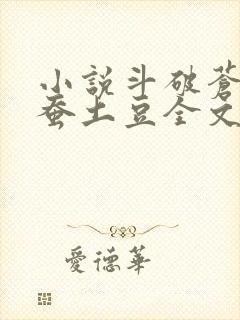 小説斗破蒼
蚕土豆全文
愛德華